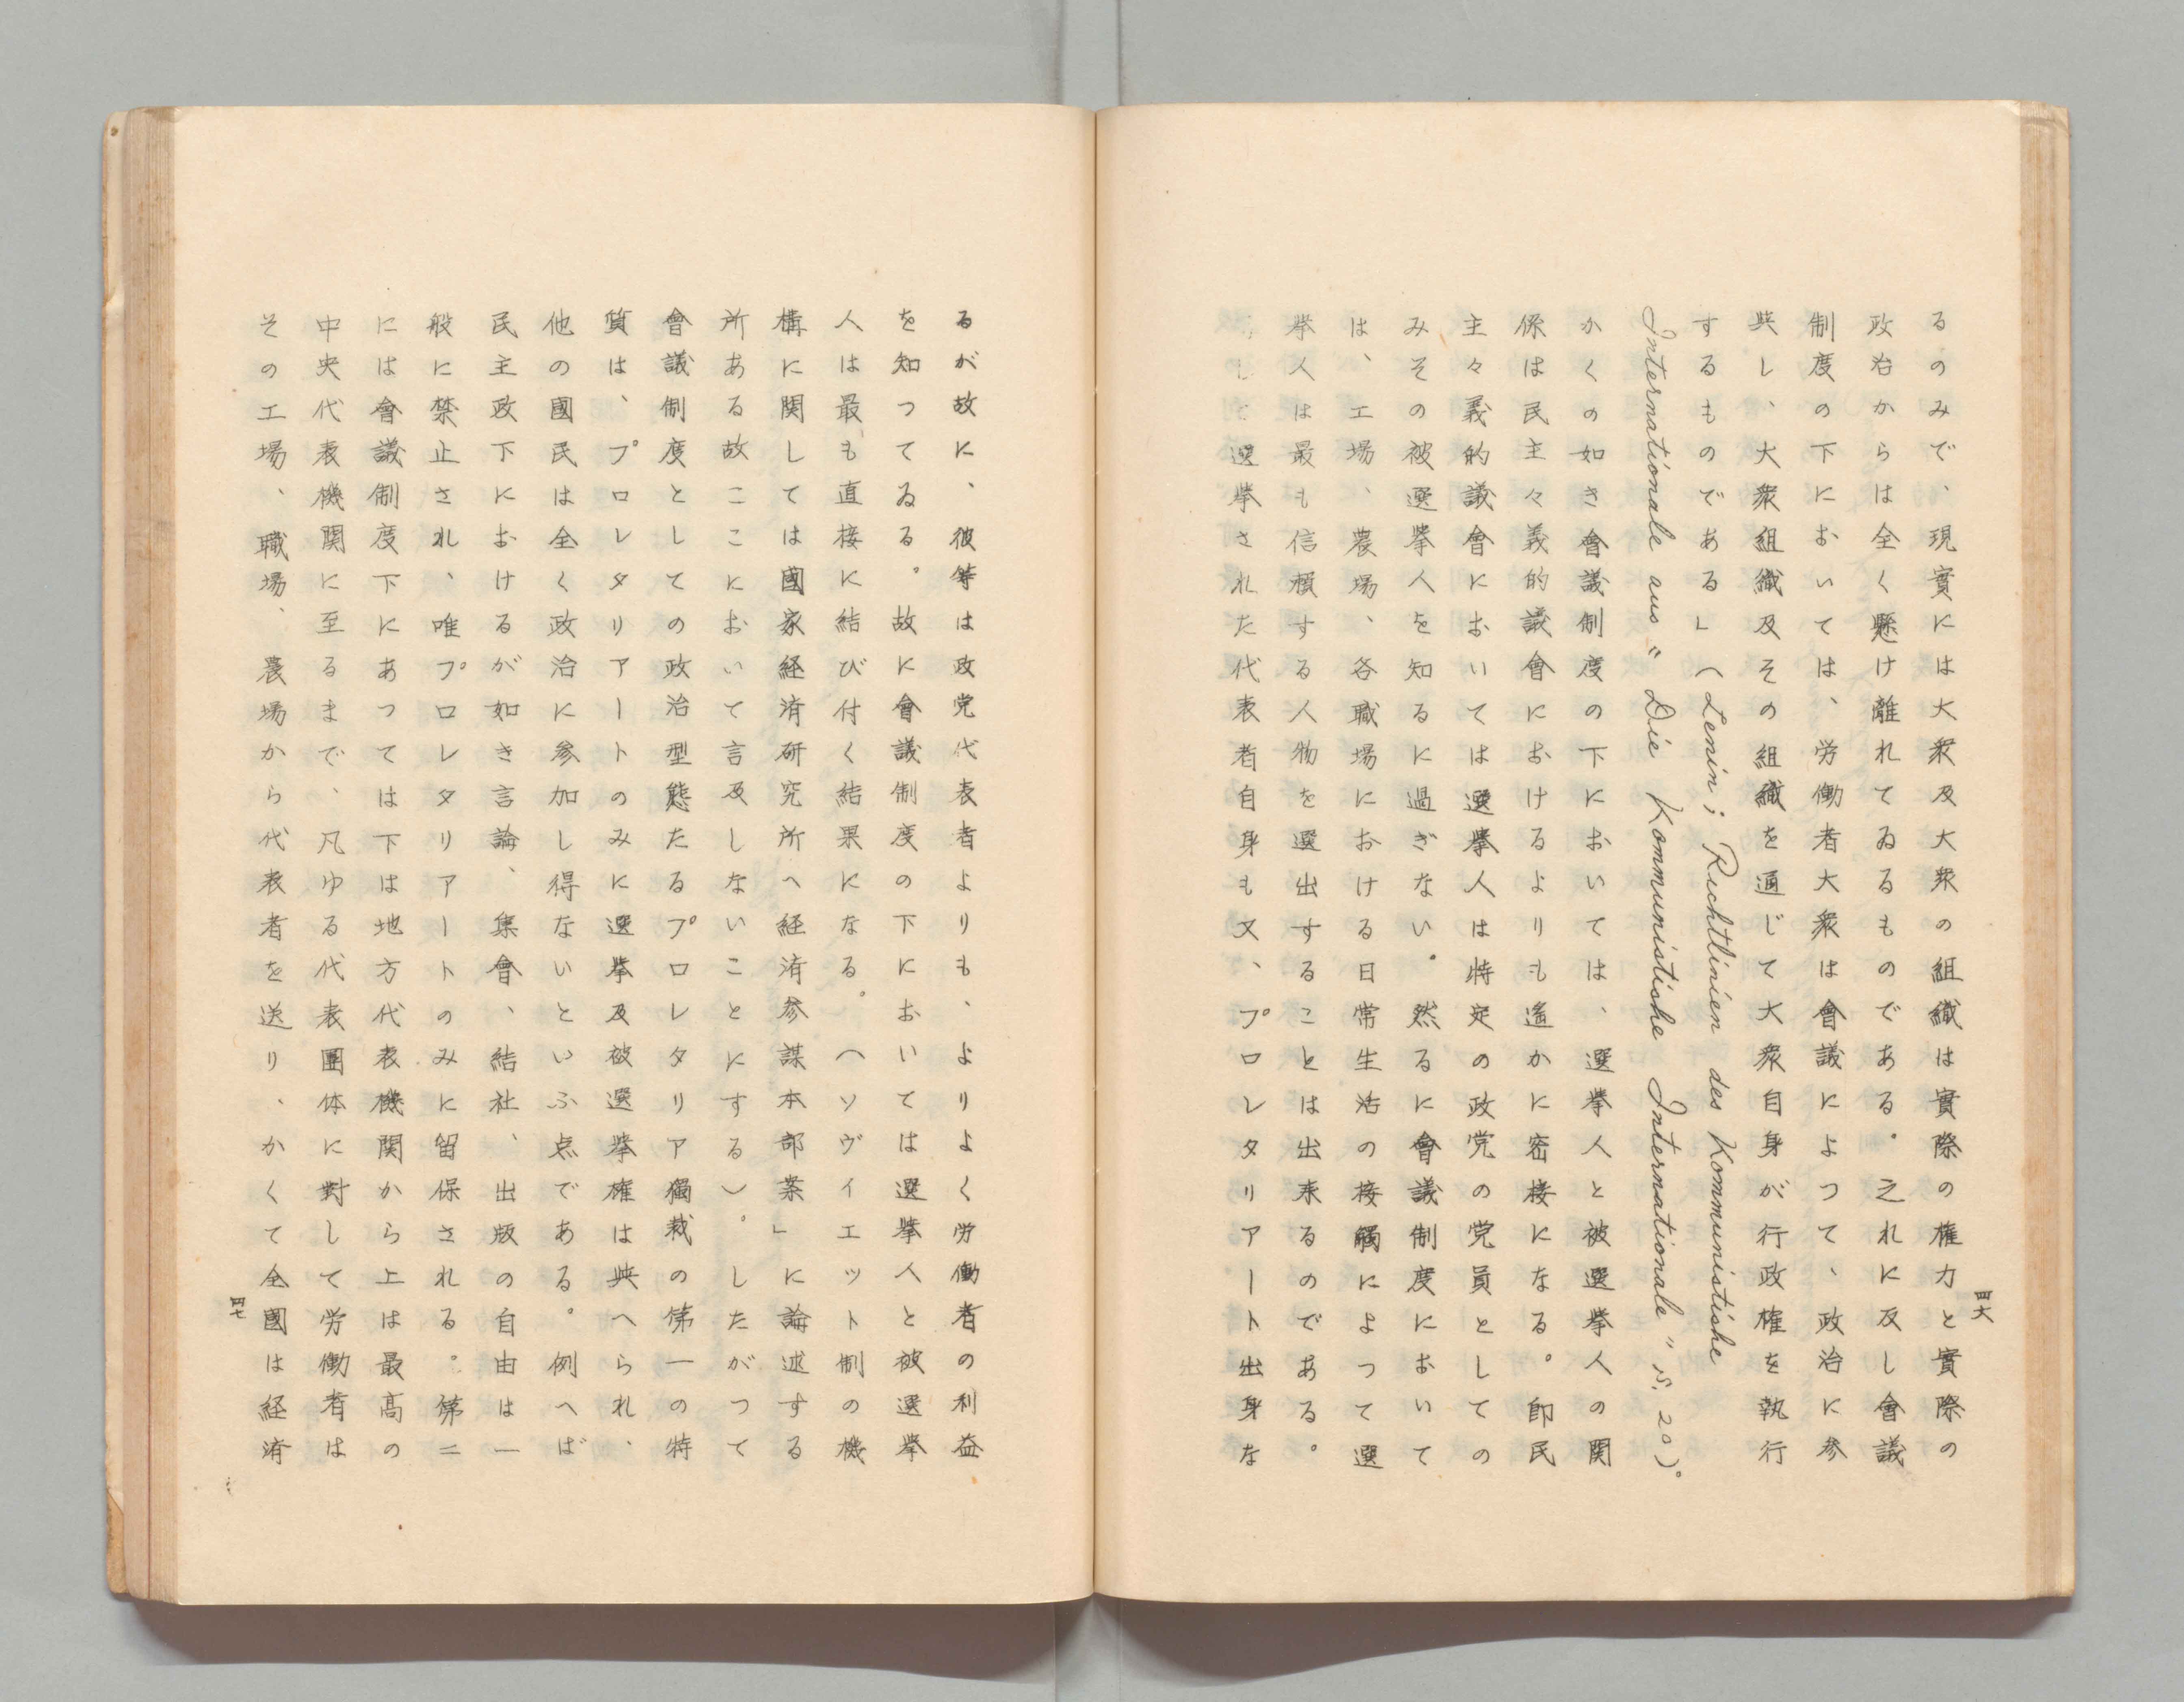 るのみで、現實には大衆及大衆の組織は實際の権力と實際の
政治からは全く懸け離れてゐるものである。之れに反し會議
制度の下においては、労働者大衆は會議によつて、政治に参
與し、大衆組織及その組織を通じて大衆自身が行政権を執行
するものである」(Lenin; Richtlinien des Kommunistishe
Internationale aus "Die Kommunistishe Internationale" S. 20)。
かくの如き會議制度の下においては、選挙人と被選挙人の関
係は民主々義的議會におけるよりも遙かに密接になる。即民
主々義的議會においては選挙人は特定の政党の党員としての
みその被選挙人を知るに過ぎない。然るに會議制度において
は、工場、農場、各職場における日常生活の接觸によつて選
挙人は最も信頼する人物を選出することは出来るのである。
して選挙された代表者自身も又、プロレタリアート出身な
四六
るが故に、彼等は政党代表者よりも、よりよく労働者の利益
を知つてゐる。故に會議制度の下においては選挙人と被選挙
人は最も直接に結び付く結果になる。(ソヴイエット制の機
構に関しては國家経済研究所へ経済参謀本部案」に論述する
所ある故ここにおいて言及しないことにする)。したがつて
會議制度としての政治型態たるプロレタリア獨裁の第一の特
質は、プロレタリアートのみに選挙及被選挙権は與へられ、
他の國民は全く政治に参加し得ないといふ点である。例へば
民主政下におけるが如き言論、集會、結社、出版の自由は一
般に禁止され、唯プロレタリアートのみに留保される。第二
には會議制度下にあつては下は地方代表機関から上は最高の
中央代表機関に至るまで、凡ゆる代表團体に對して労働者は
その工場、職場、農場から代表者を送り、かくて全國は経済
四七